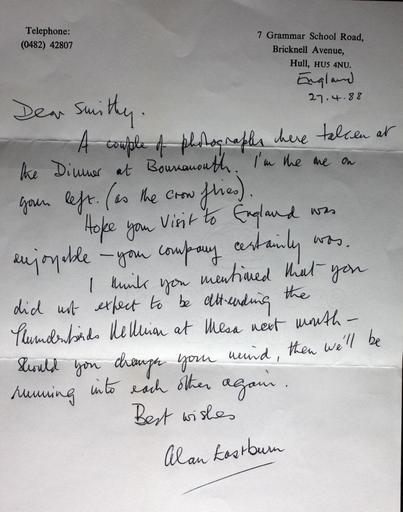 Telephone:
(0482) 42807
7 Grammar School Road,
Bricknell Avenue,
Hull, HU5 4NU.
England
27.4.88
Dear Smithy.
A couple of photographs here taken at
the Dinner at Bournemouth. I'm the one on
your left. (as the crow flies).
Hope your Visit to England was
enjoyable – your company certainly was.
I think you mentioned that you
did not expect to be attending the
Thunderbirds ReUnion at Mesa next month –
should you change your mind, then we'll be
running into each other again.
Best wishes
Alan Eastburn